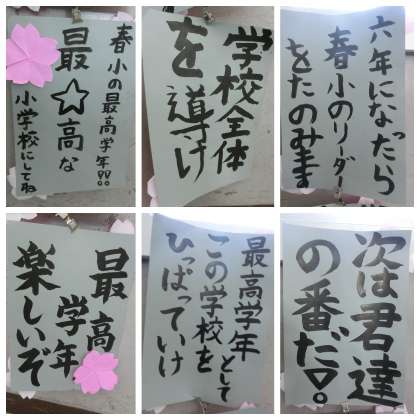 春小の最高学年!!
最☆高な
小学校にしてね
学校全体
を導け
六年になったら
春小のリーダー
をたのみます
最高
学年
楽しいぞ
最高学年として
この学校を
ひっぱっていけ
次は君達
の番だ!